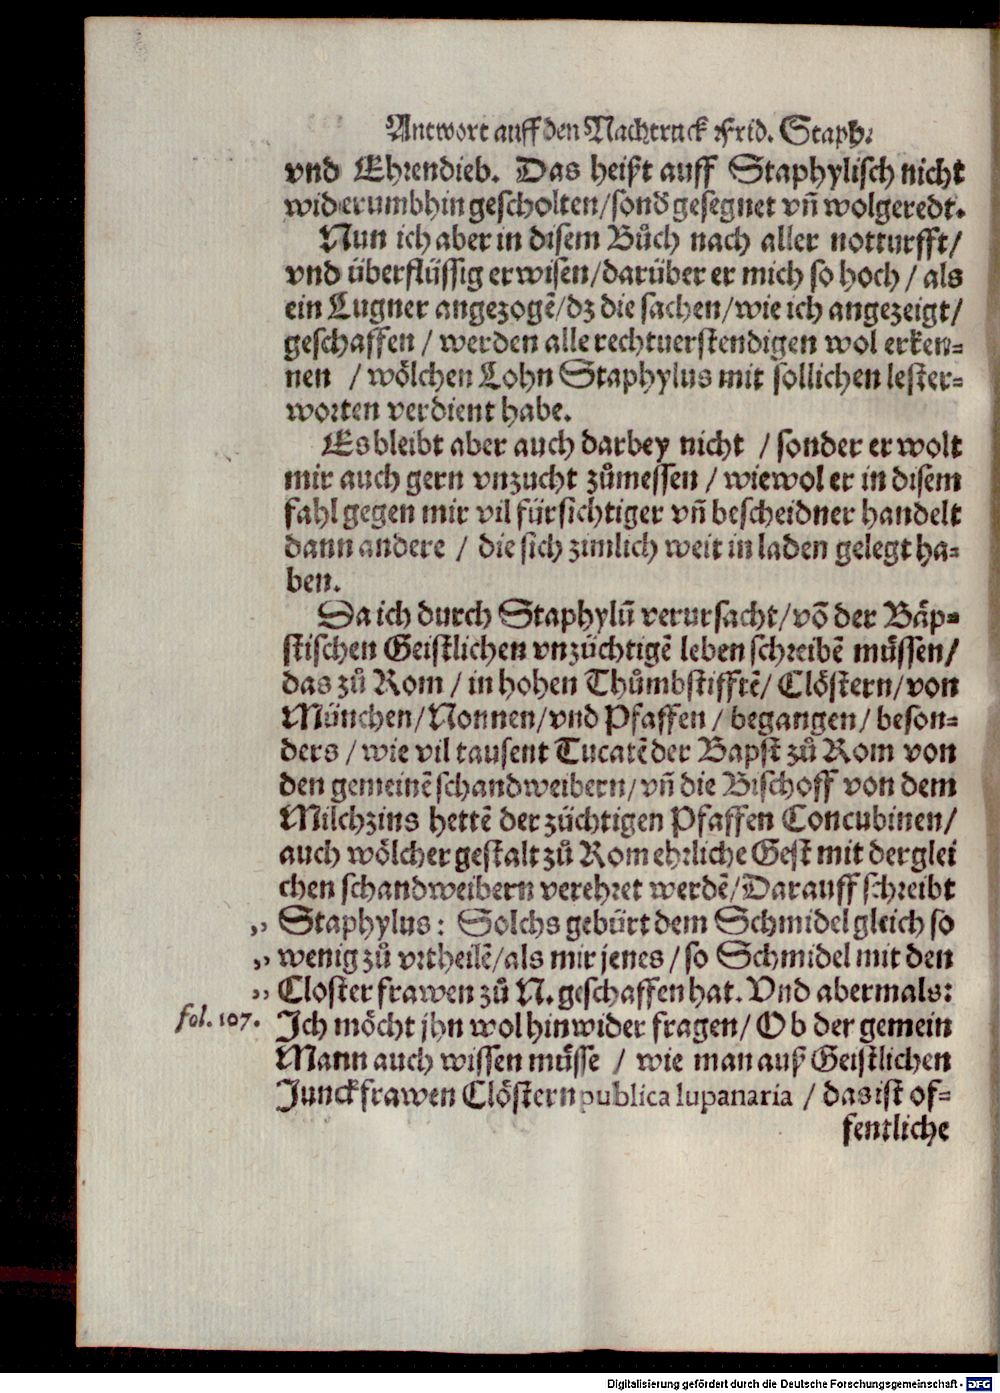 Antwort auff den Nachtruck Frid. Staph.
vnd Ehrendieb. Das heißt auff Staphylisch nicht
widerumbhin gescholten/sond̃ gesegnet vñ wolgeredt.
Nun ich aber in disem Bůch nach aller notturfft/
vnd überflüssig erwisen/darüber er mich so hoch / als
ein Lugner angezogẽ/dz die sachen/wie ich angezeigt/
geschaffen / werden alle rechtuerstendigen wol erken=
nen / wölchen Lohn Staphylus mit sollichen lester=
worten verdient habe.
Es bleibt aber auch darbey nicht / sonder er wolt
mir auch gern vnzucht zůmessen / wiewol er in disem
fahl gegen mir vil fürsichtiger vñ bescheidner handelt
dann andere / die sich zimlich weit in laden gelegt ha=
ben.
Da ich durch Staphylũ verursacht/võ der Bäp=
stischen Geistlichen vnzüchtigẽ leben schreibẽ müssen/
das zů Rom / in hohen Thůmbstifftẽ/ Clöstern/von
München/Nonnen/vnd Pfaffen / begangen/ beson=
ders / wie vil tausent Tucatẽ der Bapst zů Rom von
den gemeinẽ schandweibern/ vñ die Bischoff von dem
Milchzins hettẽ der züchtigen Pfaffen Concubinen/
auch wölcher gestalt zů Rom ehrliche Gest mit derglei
chen schandweibern verehret werdẽ/Darauff schreibt
,, Staphylus: Solchs gebürt dem Schmidel gleich so
,, wenig zů vrtheilẽ/als mir jenes / so Schmidel mit den
,, Closter frawen zů N. geschaffen hat. Vnd abermals:
fol. 107. Ich möcht jhn wol hinwider fragen/ Ob der gemein
Mann auch wissen müsse / wie man auß Geistlichen
Junckfrawen Clöstern publica lupanaria / das ist of=
fentliche
Digitalisierung gefördert durch die Deutsche Forschungsgemeinschaft - DFG